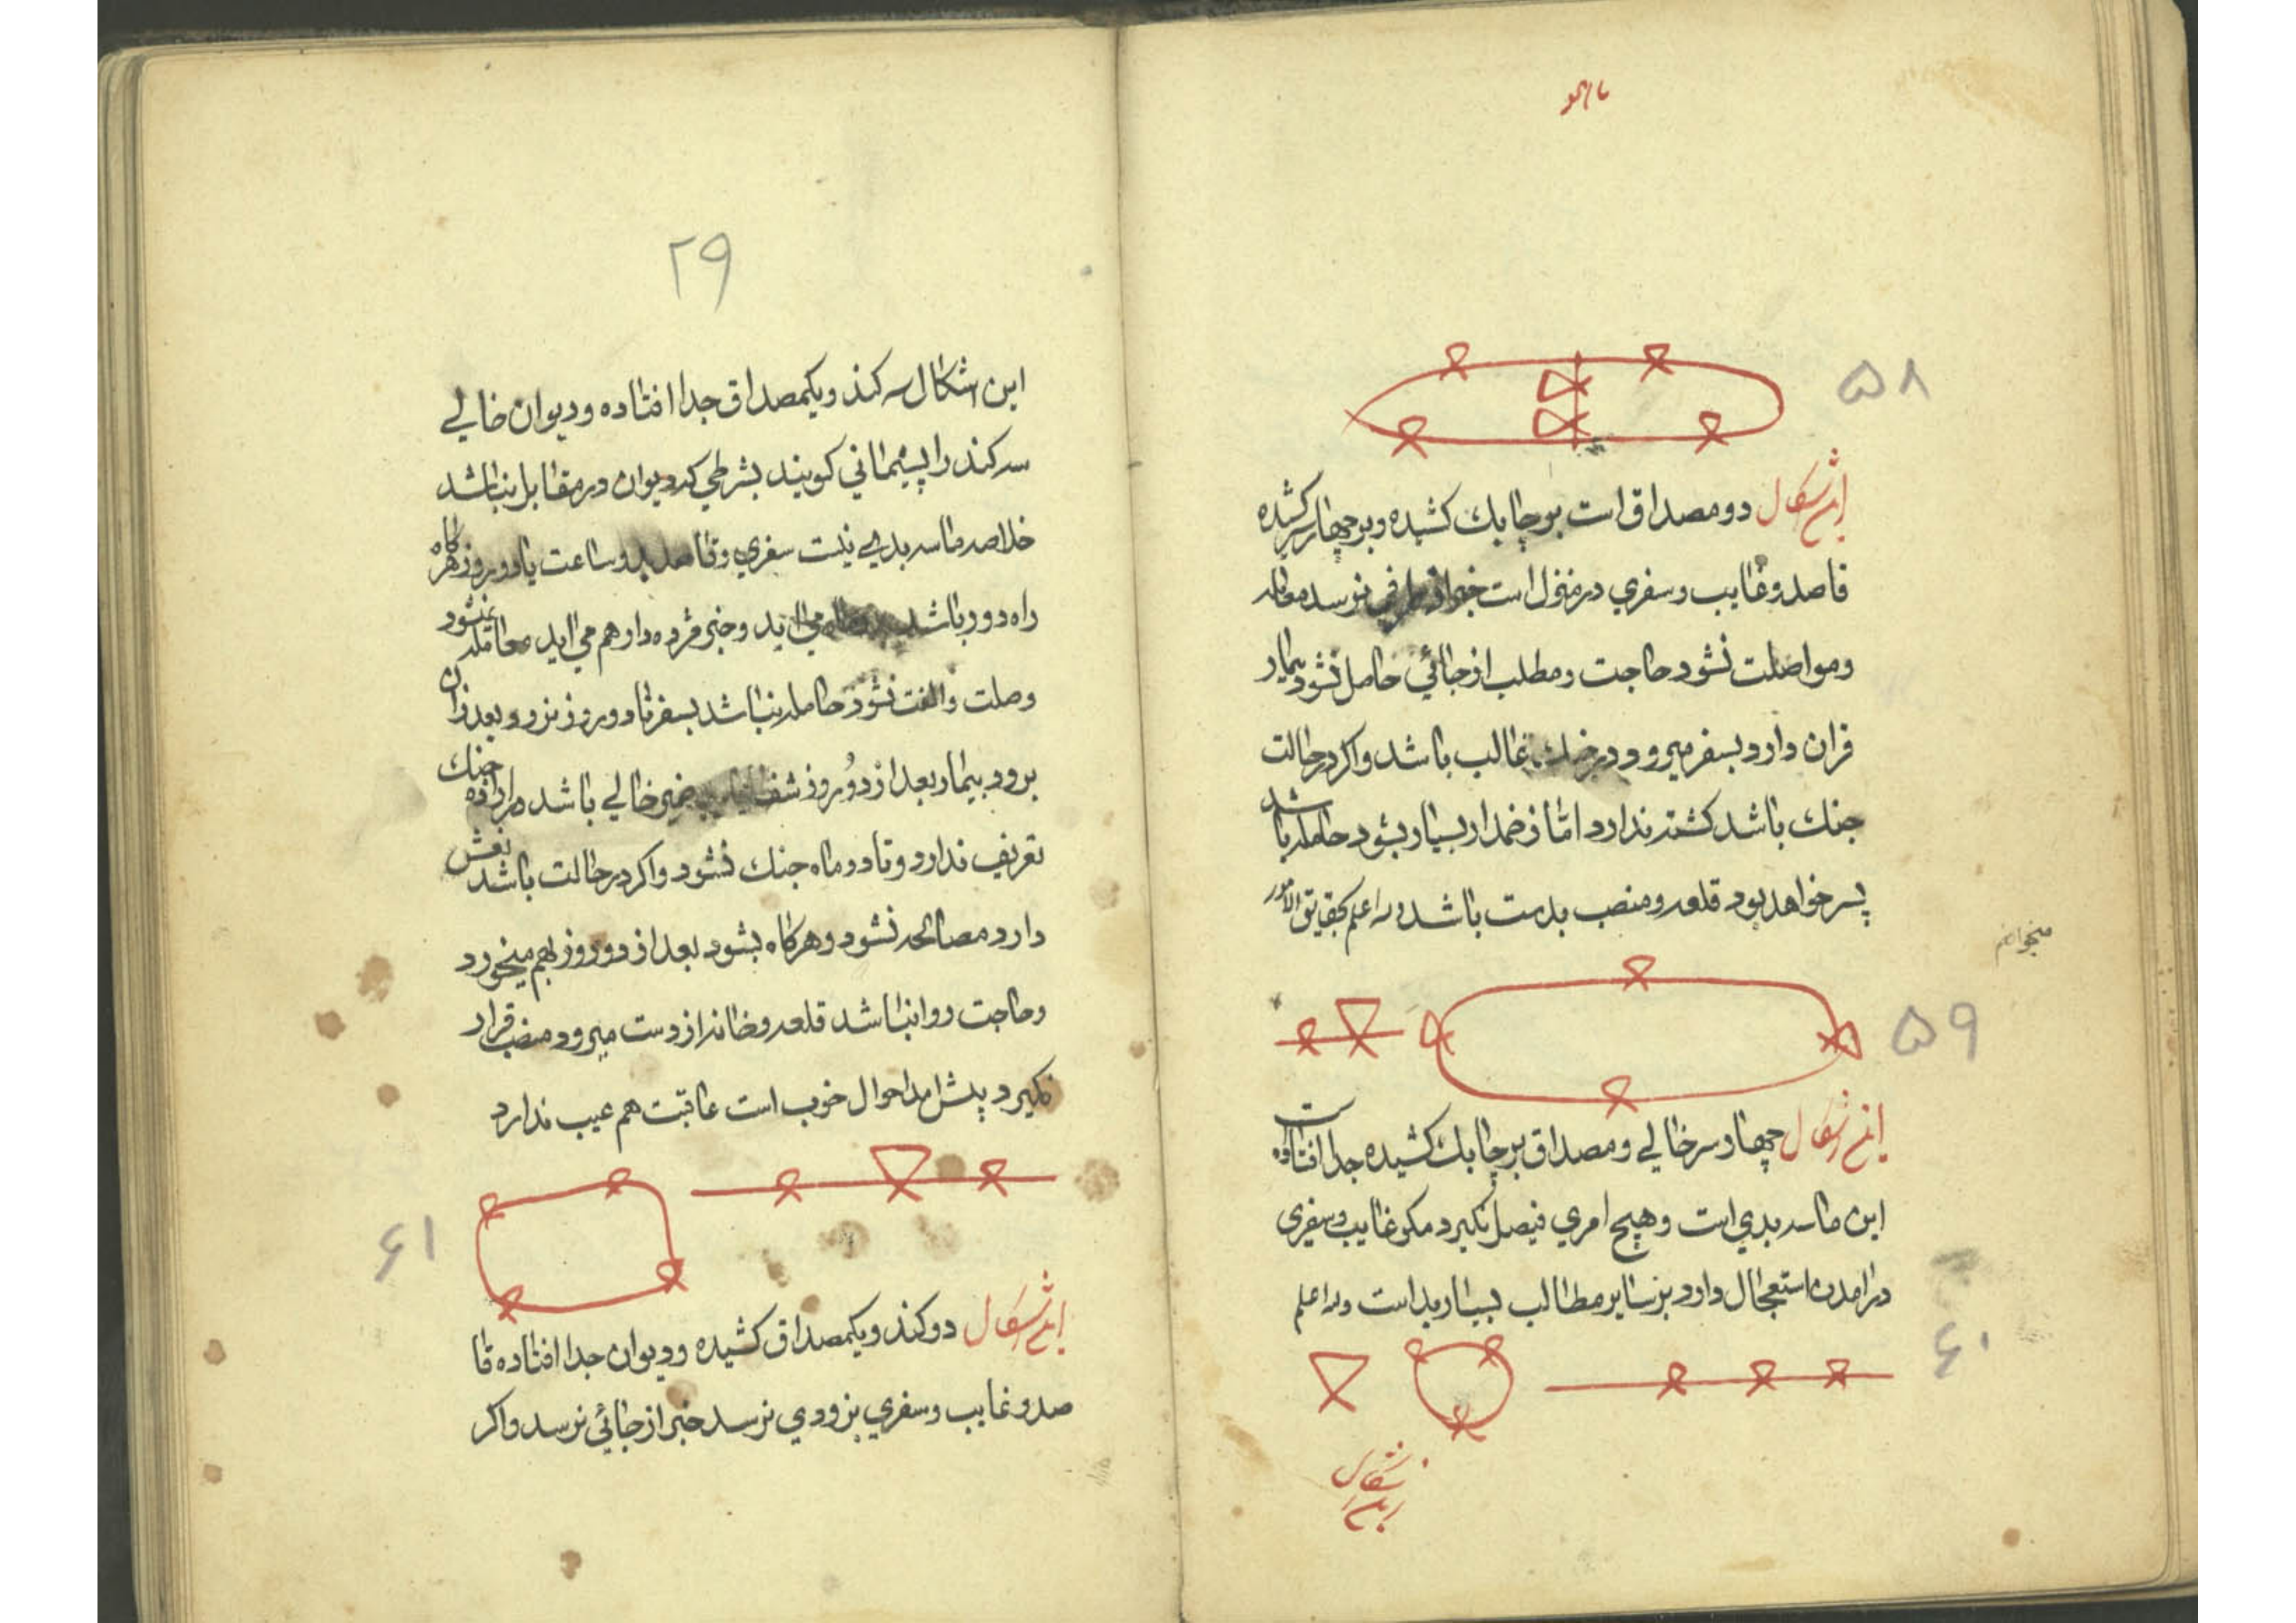 ۵۸
این اشکال دو مصداق است بر چابك كشیده و بر چهار سر كشیده
قاصد و غایب و سفري در منزل است خبر از طرفي نرسد معامله
ومواصلت نشود حاجت ومطلب از جائي حاصل نشود بیمار
قران دارد بسفر میرود در جنك غالب باشد واكر در حالت
جنك باشد كشته ندارد امّا زخمدار بسیار بشود حامله باشد
پسر خواهد بود قلعه ومنصب بدست باشد والله اعلم بحقایق الامور
میخواهم
۵۹
این اشكال چهار سر خالي ومصداق بر چابك كشیده جدا افتاده است
این ماسه بدي است وهیچ امري فیصل نكیرد مكر غایب وسفري
در امدن استعجال دارد بر سایر مطالب بسیار بد است والله اعلم
۶۰
این اشكال
۲۹
این اشكال سه كند ویكمصداق جدا افتاده ودیوان خالي
سه كند را پیمانی كویند بشرطي كه دیوان در مقابل نباشد
خلاصه ماسه بدي نیست سفري وقاصد بدو ساعت یا دو روز هركاه
راه دور باشد مي اید وخبر مژده دار هم مي اید معامله نشود
وصلت والفت نشود حامله نباشد بسفر تا دو روز نرود بعد از ان
برود بیمار بعد از دو روز شفا ضمیر خالي باشد در اراده جنك
تعریف ندارد وتا دو ماه جنك نشود واكر در حالت باشد نعش
دارد مصالحه نشود وهركاه بشود بعد از دو روز بهم میخورد
وحاجت روا نباشد قلعه وخانه از دست میرود منصب قرار
نكیرد پیش امد احوال خوب است عاقبت هم عیب ندارد
۶۱
این اشكال دو كند ویكمصداق كشیده ودیوان جدا افتاده قا
صد وغایب وسفري بزودي نرسد خبر از جائي نرسد واكر